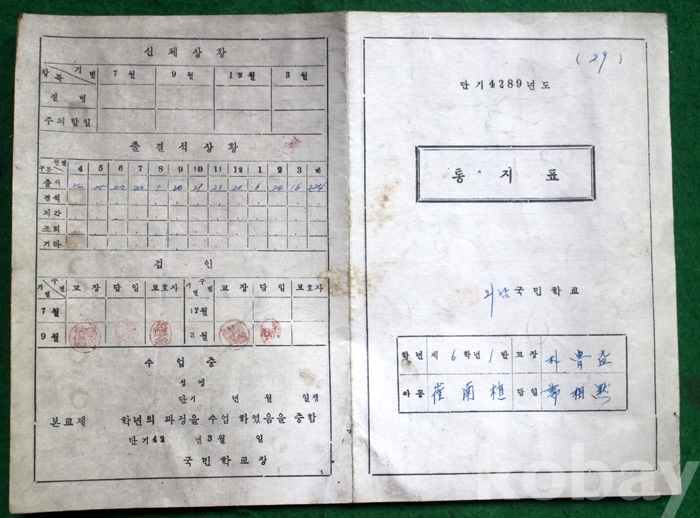 신체상황
항목 기별 7월 9월 12월 3월
질병
주의할일
출결석상황
구분 월별 4 5 6 7 8 9 10 11 12 1 2 3 계
출석 5 20 21 23 20 6 20 16 224
결석
지각
조퇴
기타
검인
기별 구별 교장 담임 보호자 기별 구별 교장 담임 보호자
7월 12월
9월 3월
수업증
성명
단기 년 월 일생
본교제 학년의 과정을 수업 하였음을 증함
단기42 년3월 일
국민학교장
(29)
단기4289년도
통지표
국민학교
학년 제 6 학년 1 반 교장 朴
아동 崔南植 담임 鄭相默
kobay